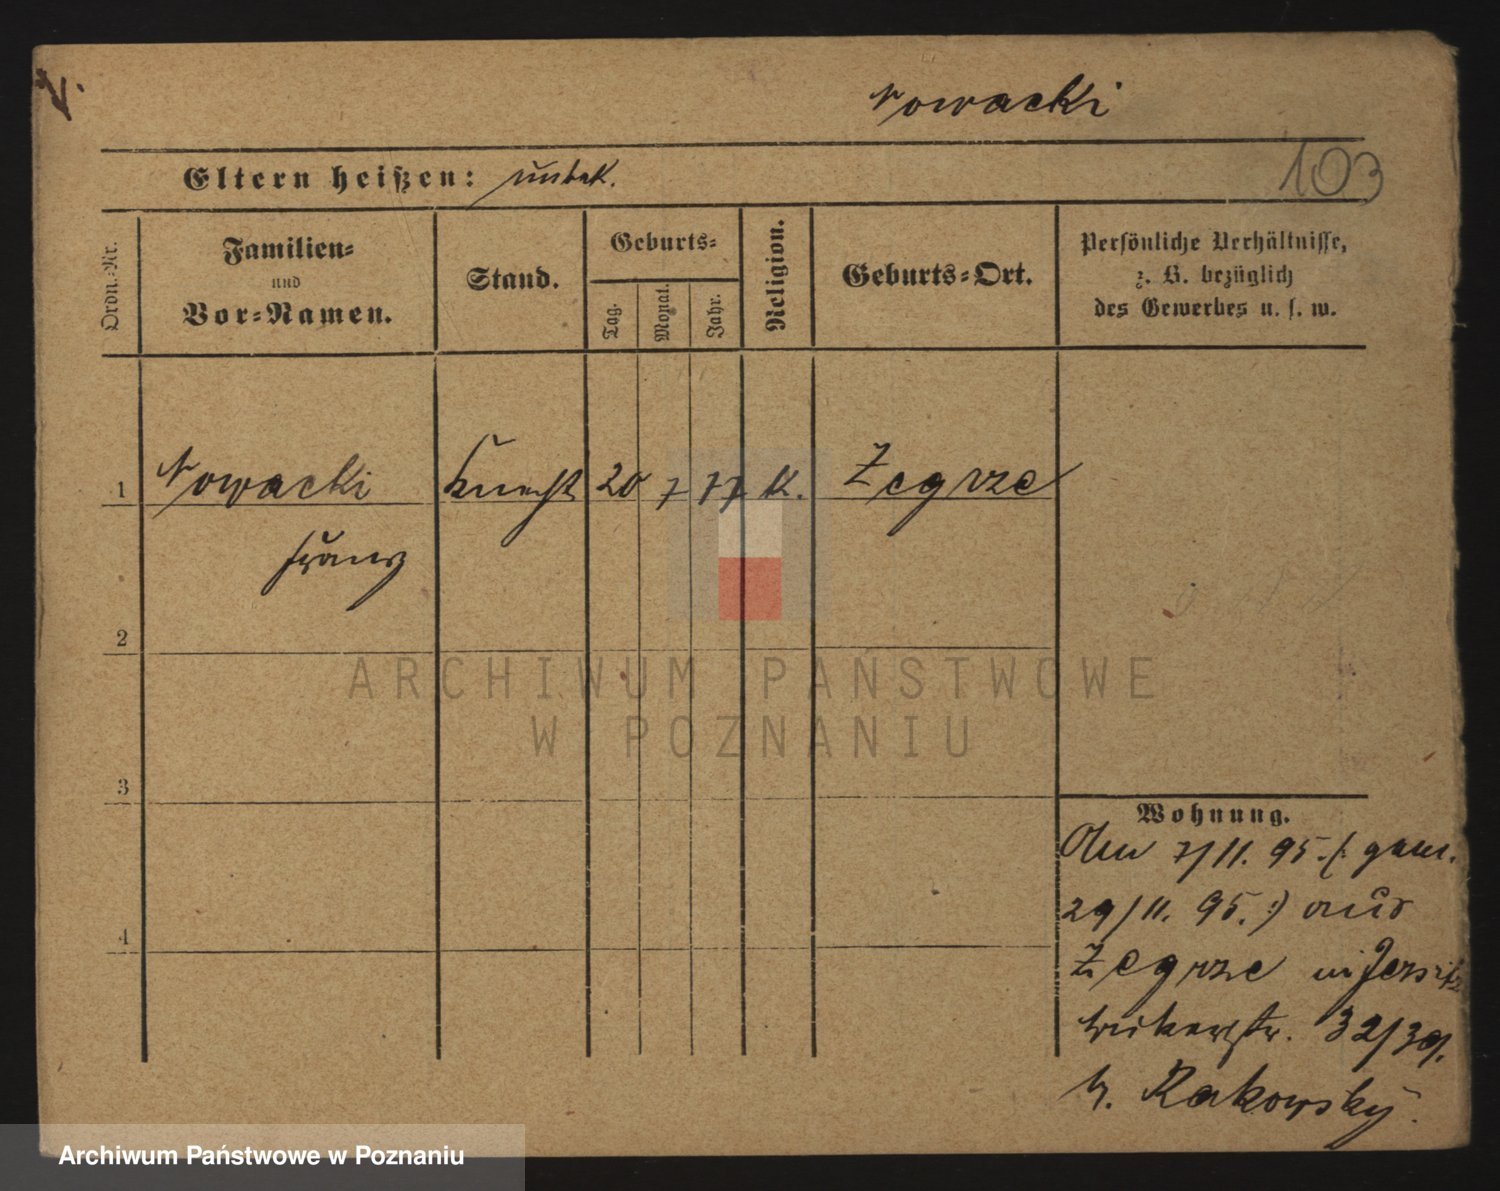 V.
Nowacki
Eltern heißen: unbek.
103
Ordn.-Nr.
Familien-
und
Vor-Namen.
Stand.
Geburts-
Tag.
Monat.
Jahr.
Religion.
Geburts-Ort.
Persönliche Verhältnisse,
z. B. bezüglich
des Gewerbes u. s. w.
1 Nowacki Knecht 20 7 77 K. Zegrze
Franz
2
ARCHIWUM PAŃSTWOWE
W POZNANIU
3
Wohnung.
Am 7/11. 95. (: gem.
29/11. 95. :) aus
4
Zegrze in Jersitz
32/39.
b. Rakowsky.
Archiwum Państwowe w Poznaniu